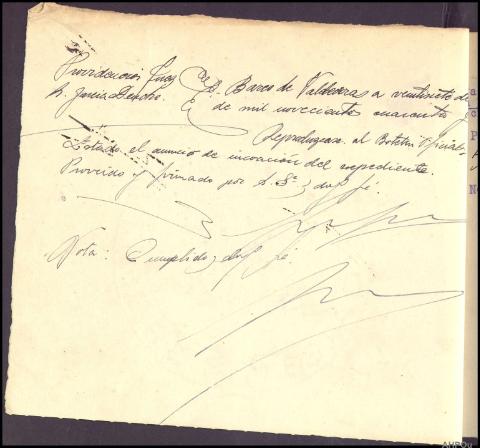 Providencia Juez
Sr. García
Barco de Valdeorras a veintisiete de
de mil novecientos cuarenta
Reprodúzcase al Boletín Oficial
Estado el anuncio de incoación del expediente.
Proveído y firmado por S. Sª; doy fé.
Nota: Cumplido; doy fé.
AHPOu